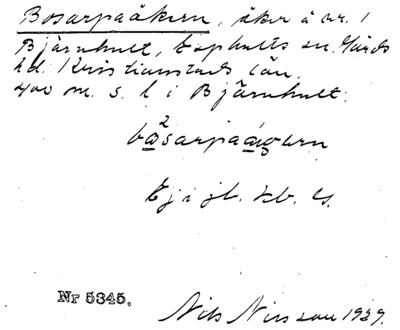 Bosarpaåkern, åker å nr. 1
Bjärnhult, Esphults sn. Gärds
hd. Kristianstads län.
400 m. s. l i Bjärnhult.
bo²sarpaågern
Ej i jb. kb. Ls.
Nr 5345.
Nils Nilsson 1929.